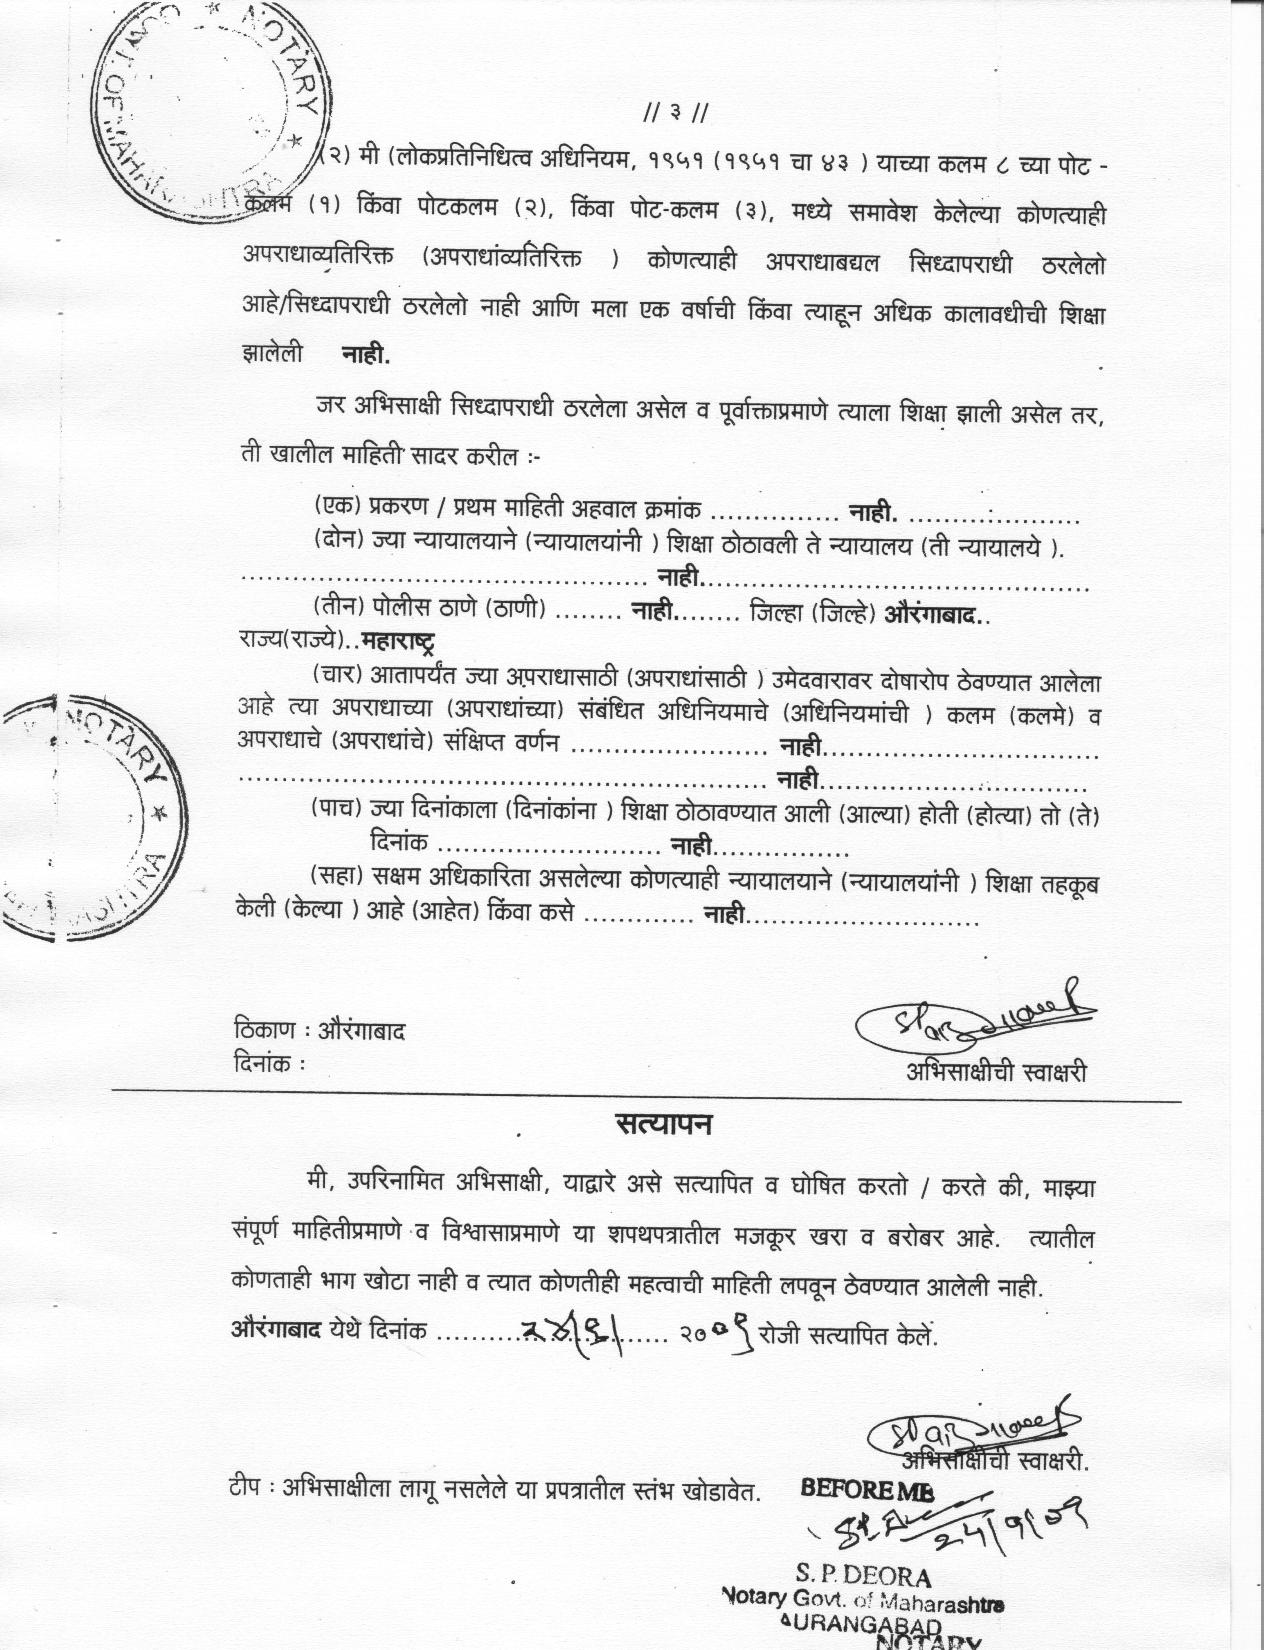 GOVT. OF MAHARASHTRA ★ NOTARY ★
// ३ //
(२) मी (लोकप्रतिनिधित्व अधिनियम, १९५१ (१९५१ चा ४३ ) याच्या कलम ८ च्या पोट -
कलम (१) किंवा पोटकलम (२), किंवा पोट-कलम (३), मध्ये समावेश केलेल्या कोणत्याही
अपराधाव्यतिरिक्त (अपराधांव्यतिरिक्त ) कोणत्याही अपराधाबद्यल सिध्दापराधी ठरलेलो
आहे/सिध्दापराधी ठरलेलो नाही आणि मला एक वर्षाची किंवा त्याहून अधिक कालावधीची शिक्षा
झालेली नाही.
जर अभिसाक्षी सिध्दापराधी ठरलेला असेल व पूर्वाक्ताप्रमाणे त्याला शिक्षा झाली असेल तर,
ती खालील माहिती सादर करील :-
(एक) प्रकरण / प्रथम माहिती अहवाल क्रमांक ............... नाही. ....................
(दोन) ज्या न्यायालयाने (न्यायालयांनी ) शिक्षा ठोठावली ते न्यायालय (ती न्यायालये ).
............................................... नाही.............................................
(तीन) पोलीस ठाणे (ठाणी) ........ नाही........ जिल्हा (जिल्हे) औरंगाबाद..
राज्य(राज्ये)..महाराष्ट्र
(चार) आतापर्यंत ज्या अपराधासाठी (अपराधांसाठी ) उमेदवारावर दोषारोप ठेवण्यात आलेला
आहे त्या अपराधाच्या (अपराधांच्या) संबंधित अधिनियमाचे (अधिनियमांची ) कलम (कलमे) व
अपराधाचे (अपराधांचे) संक्षिप्त वर्णन ....................... नाही................................
............................................................. नाही...............................
(पाच) ज्या दिनांकाला (दिनांकांना ) शिक्षा ठोठावण्यात आली (आल्या) होती (होत्या) तो (ते)
दिनांक .......................... नाही................
(सहा) सक्षम अधिकारिता असलेल्या कोणत्याही न्यायालयाने (न्यायालयांनी ) शिक्षा तहकूब
केली (केल्या ) आहे (आहेत) किंवा कसे ............. नाही...........................
NOTARY ★
ठिकाण : औरंगाबाद
दिनांक :
अभिसाक्षीची स्वाक्षरी
सत्यापन
मी, उपरिनामित अभिसाक्षी, याद्वारे असे सत्यापित व घोषित करतो / करते की, माझ्या
संपूर्ण माहितीप्रमाणे व विश्वासाप्रमाणे या शपथपत्रातील मजकूर खरा व बरोबर आहे. त्यातील
कोणताही भाग खोटा नाही व त्यात कोणतीही महत्वाची माहिती लपवून ठेवण्यात आलेली नाही.
औरंगाबाद येथे दिनांक ........................... २००९ रोजी सत्यापित केले.
अभिसाक्षीची स्वाक्षरी.
टीप : अभिसाक्षीला लागू नसलेले या प्रपत्रातील स्तंभ खोडावेत.
BEFORE ME
S. P. DEORA
Notary Govt. of Maharashtra
AURANGABAD
NOTARY